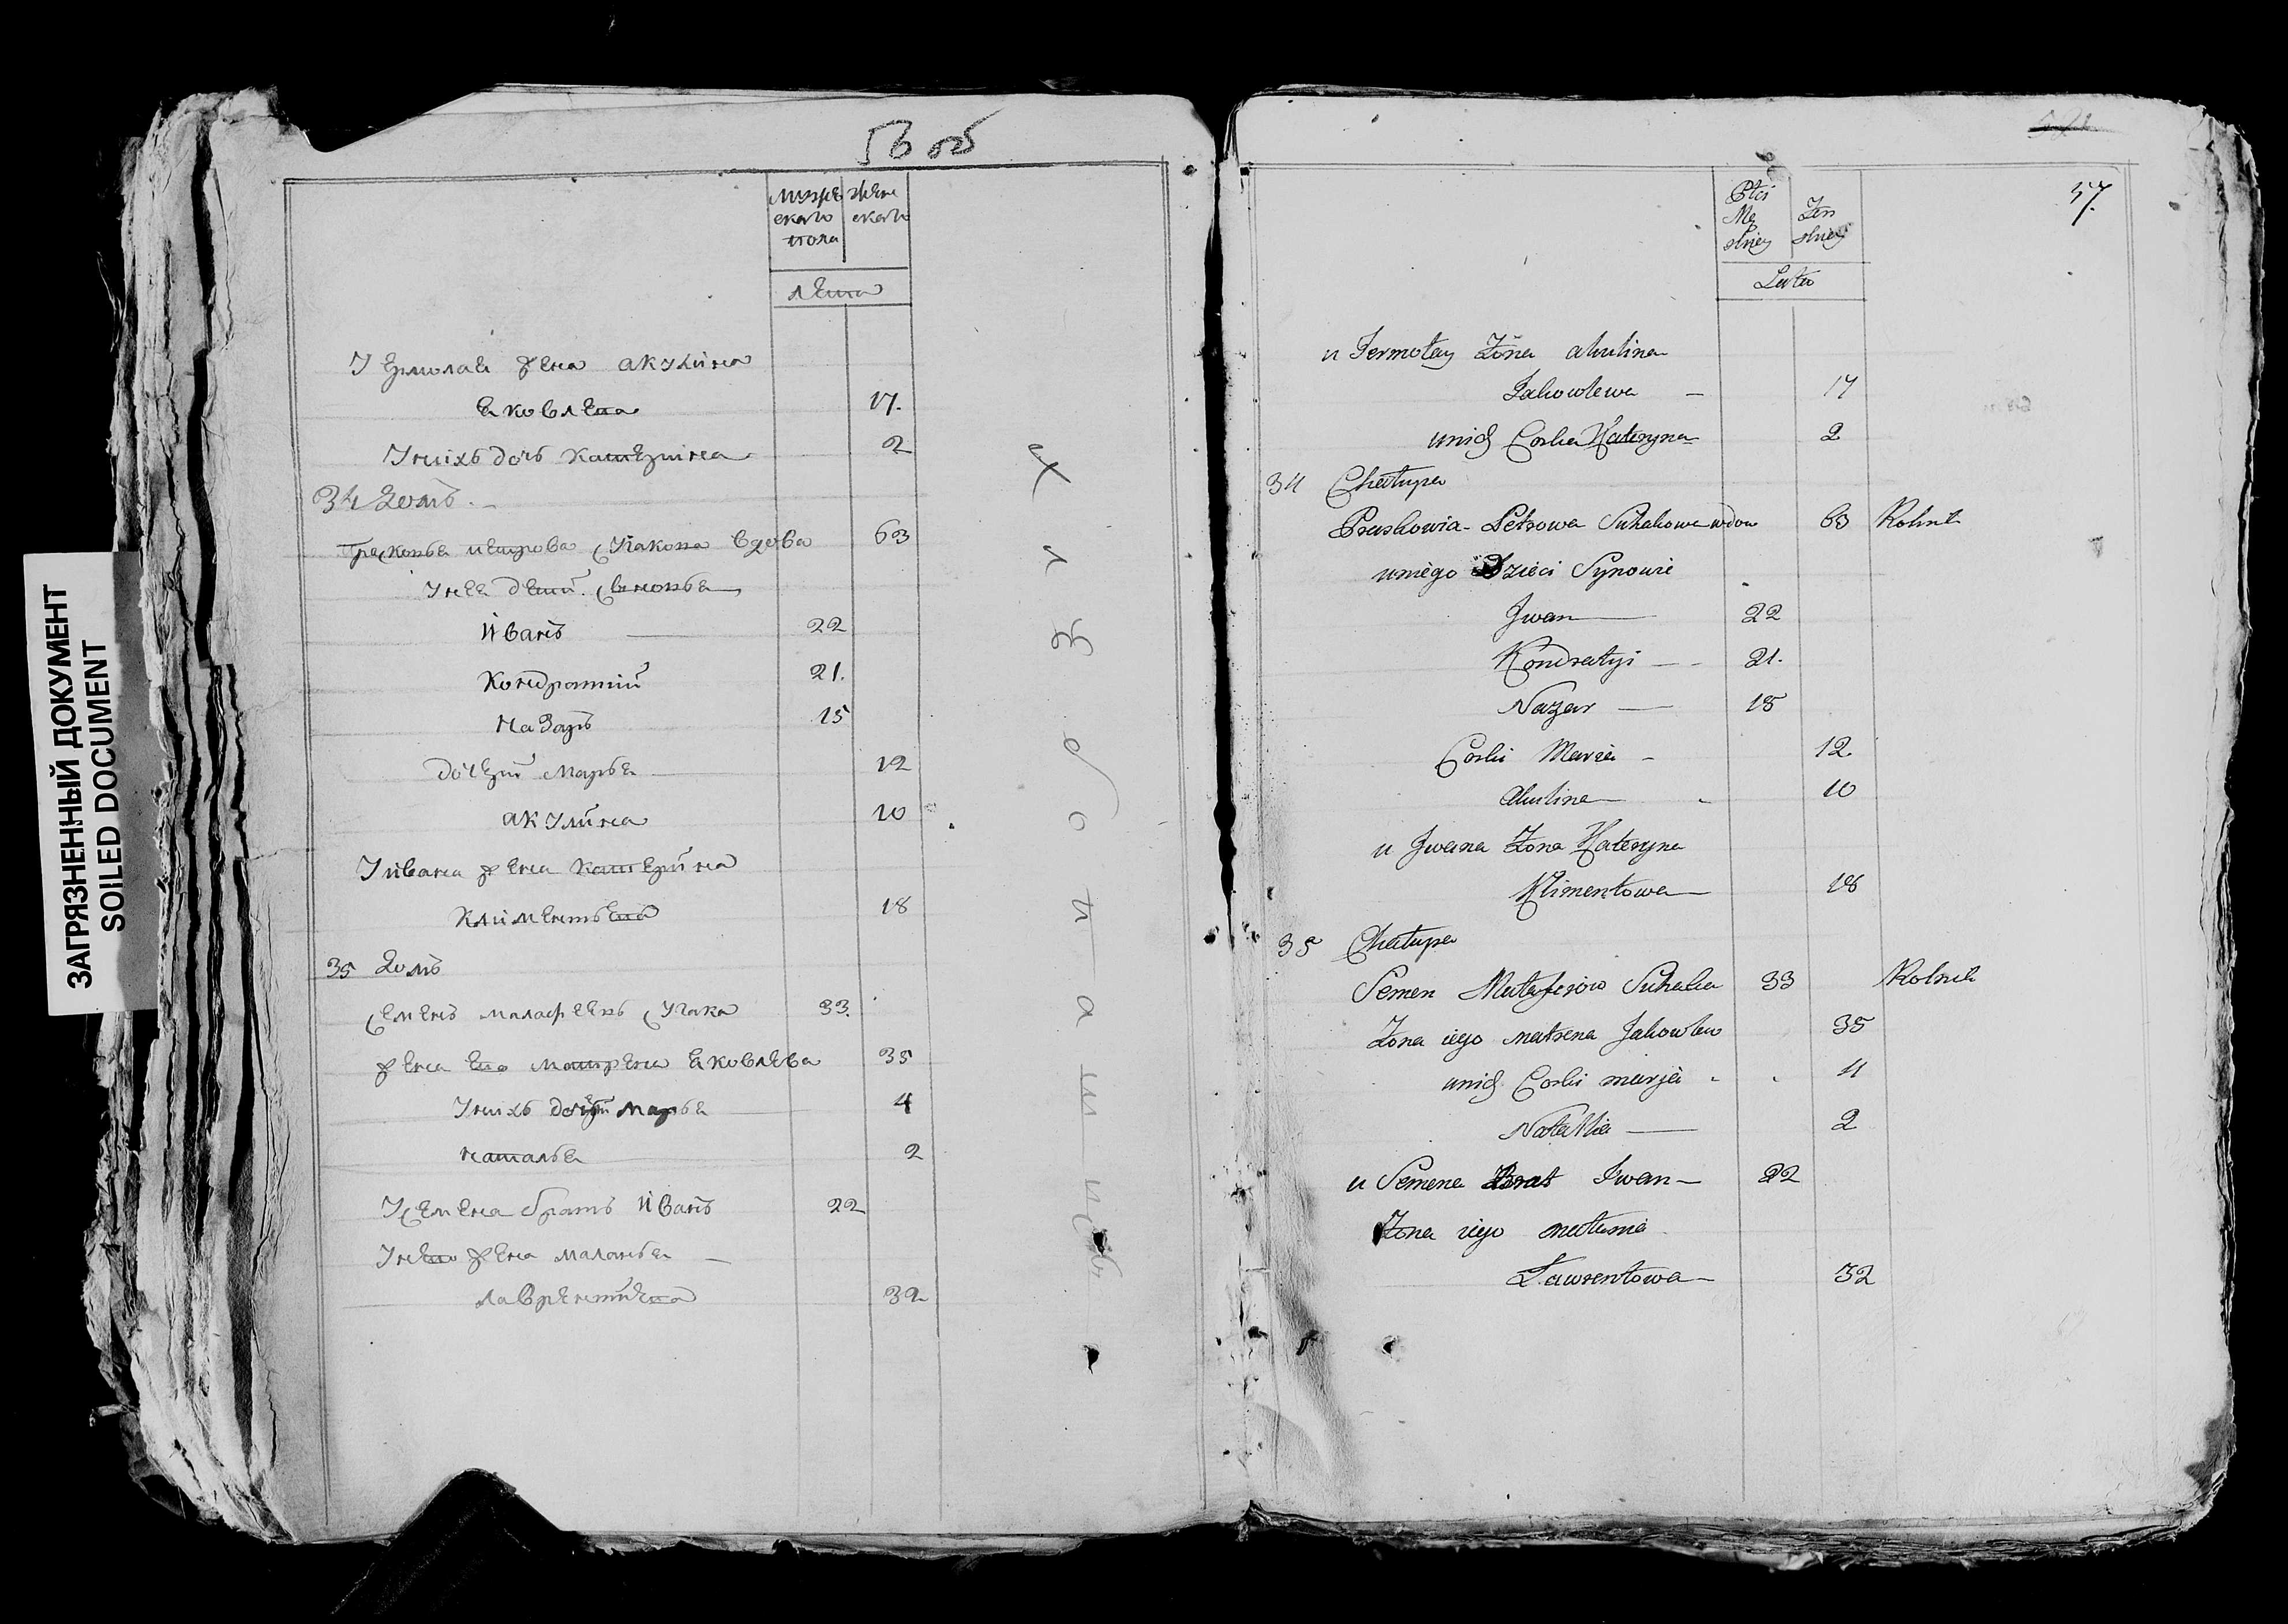 ЗАГРЯЗНЕННЫЙ ДОКУМЕНТ
SOILED DOCUMENT
56 об
мужеского пола
женского
лета
У Ермолае жена акулина
Ековлева 17.
У них доч катерина 2
34 домъ.
Прасковея петрова сучакова вдова 63
У нее дети сыновея
Иванъ 22
Кондратий 21.
Назаръ 15
дочери Марья 12
акулина 10
У ивана жена катерина
Климентьева 18
35 домъ
Семенъ малафеевъ сучака 33.
жена его матрена Ековлева 35
У нихъ дочери марья 4
наталья 2
У Семена братъ Иванъ 22
У него жена маланья
лаврентиева 32
хлебопашисъ
57.
Płci Męskiey
Żenskiey
Lata
u Jermołay Żona akulina
Jakowlewa 17
unich Corka Kateryna 2
34 Chałupa
Praskowia Petrowa Suhakowa wdow 63 Rolnik
uniego Dzieci Synowie
Jwan 22
Kondratyi 21.
Nazar 15
Corki Maria 12.
Akulina 10
u Jwana Żona Kateryna
Klimentowa 18
35 Chałupa
Semen Małafeiow Suhaka 33 Rolnik
Żona iego matrena Jakowlew 35
unich Corki marja 4
Natallia 2
u Semena Brat Iwan 22
Żona iego
Lawrentowa 32